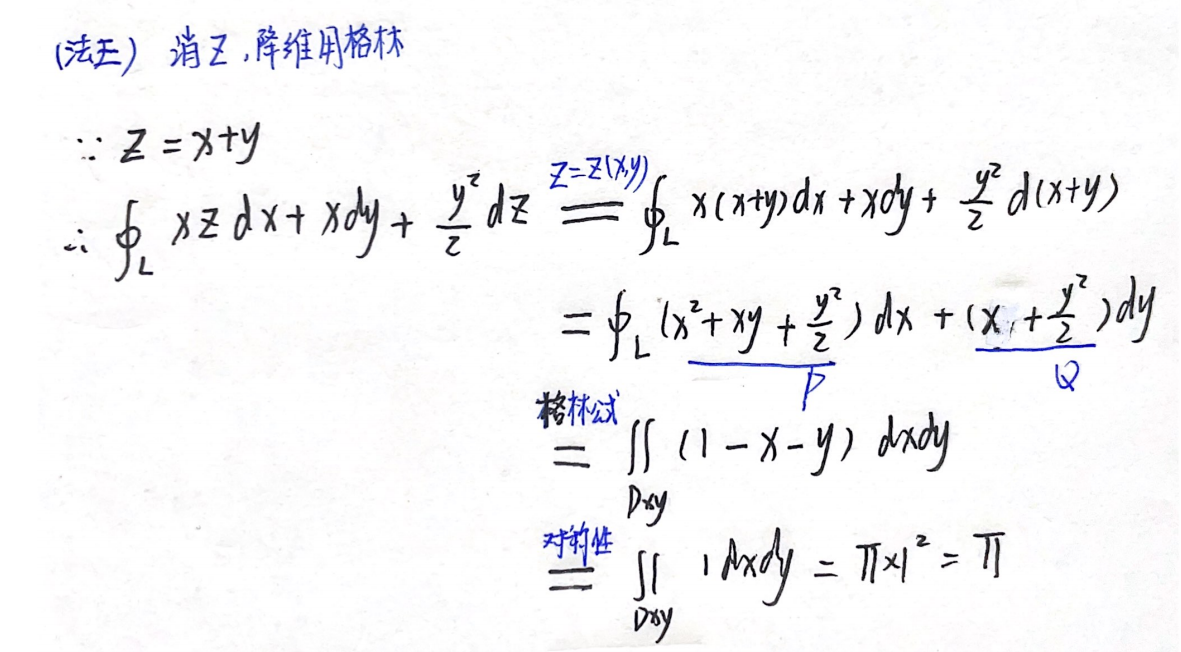 (法三) 消Z,降维用格林
∵ Z = x+y
∴ ∮_L xz dx + xdy + y²/2 dz  z=z(x,y) = ∮_L x(x+y)dx + xdy + y²/2 d(x+y)
= ∮_L (x² + xy + y²/2) dx + (x + y²/2) dy
P Q
格林公式 = ∬_Dxy (1 - x - y) dxdy
对称性 = ∬_Dxy 1 dxdy = π×1² = π